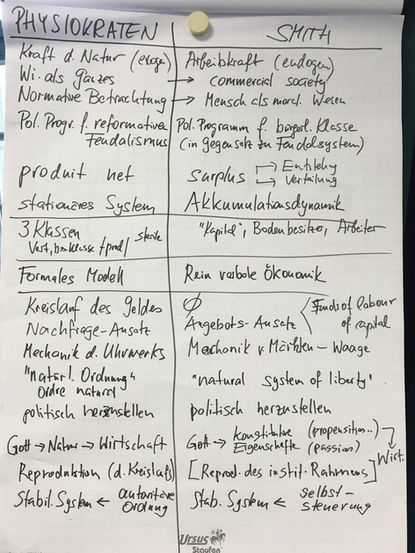 PHYSIOKRATEN SMITH
Kraft d. Natur (exogen) Arbeitskraft (endogen)
Wi. als ganzes → commercial society
Normative Betrachtung → Mensch als moral. Wesen
Pol. Progr. f. reformativen Feudalismus
Pol. Programm f. bürgerl. Klasse (in gegensatz zu Feudalsystem)
produit net surplus → Entstehg
→ Verteilung
stationäres System Akkumulationsdynamik
3 Klassen "Kapital", Bodenbesitzer, Arbeiter
/ prod / sterile
Formales Modell Rein verbale Ökonomik
Kreislauf des Geldes Ø
Nachfrage-Ansatz Angebots-Ansatz < Funds of labour
of capital
Mechanik d. Uhrwerks Mechanik v. Märkten – Waage
"natürl. Ordnung" "natural system of liberty"
ordre naturel
politisch herzustellen politisch herzustellen
Gott → Natur → Wirtschaft Gott → Konstitutive (propensition..)
Eigenschafte (passion) → Wirt.
Reproduktion (d. Kreislaufs) [Reprod. des instit. Rahmens]
Stabil. System ← autoritäre Stab. System ← selbst-
Ordnung steuerung
Ursus
Staufen